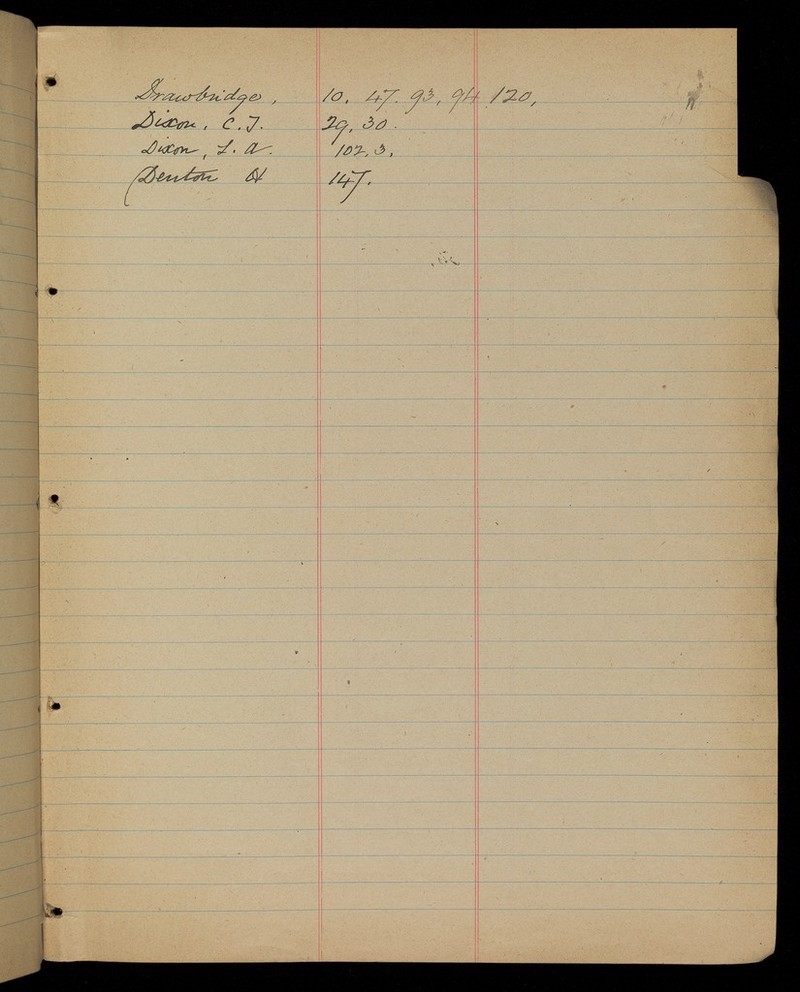 Drawbridge, 10, 47. 93, 94 120,
Dixon, C. J. 29, 30.
Dixon, L. A. 102, 3,
Denton 147.